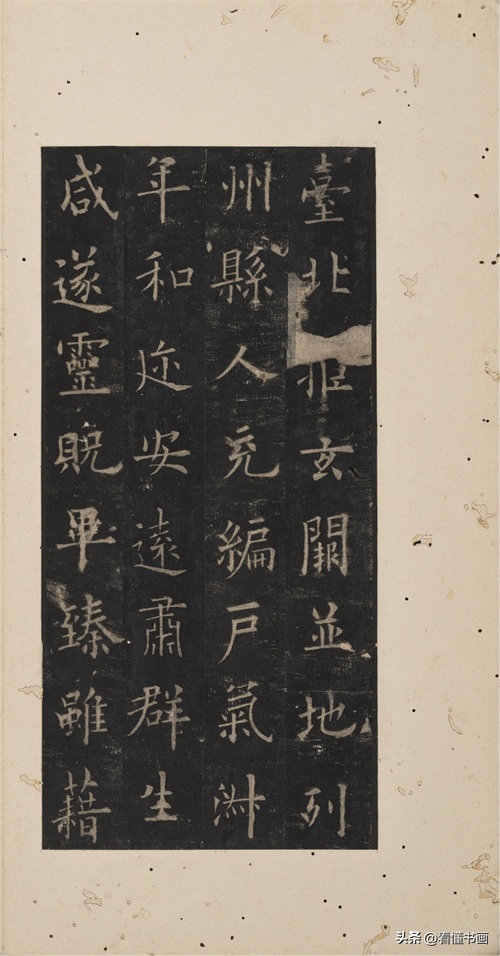 臺北拒玄闕並地列
州縣人充編戶氣淑
年和迩安遠肅群生
咸遂靈貺畢臻雖藉
头条 @看懂书画